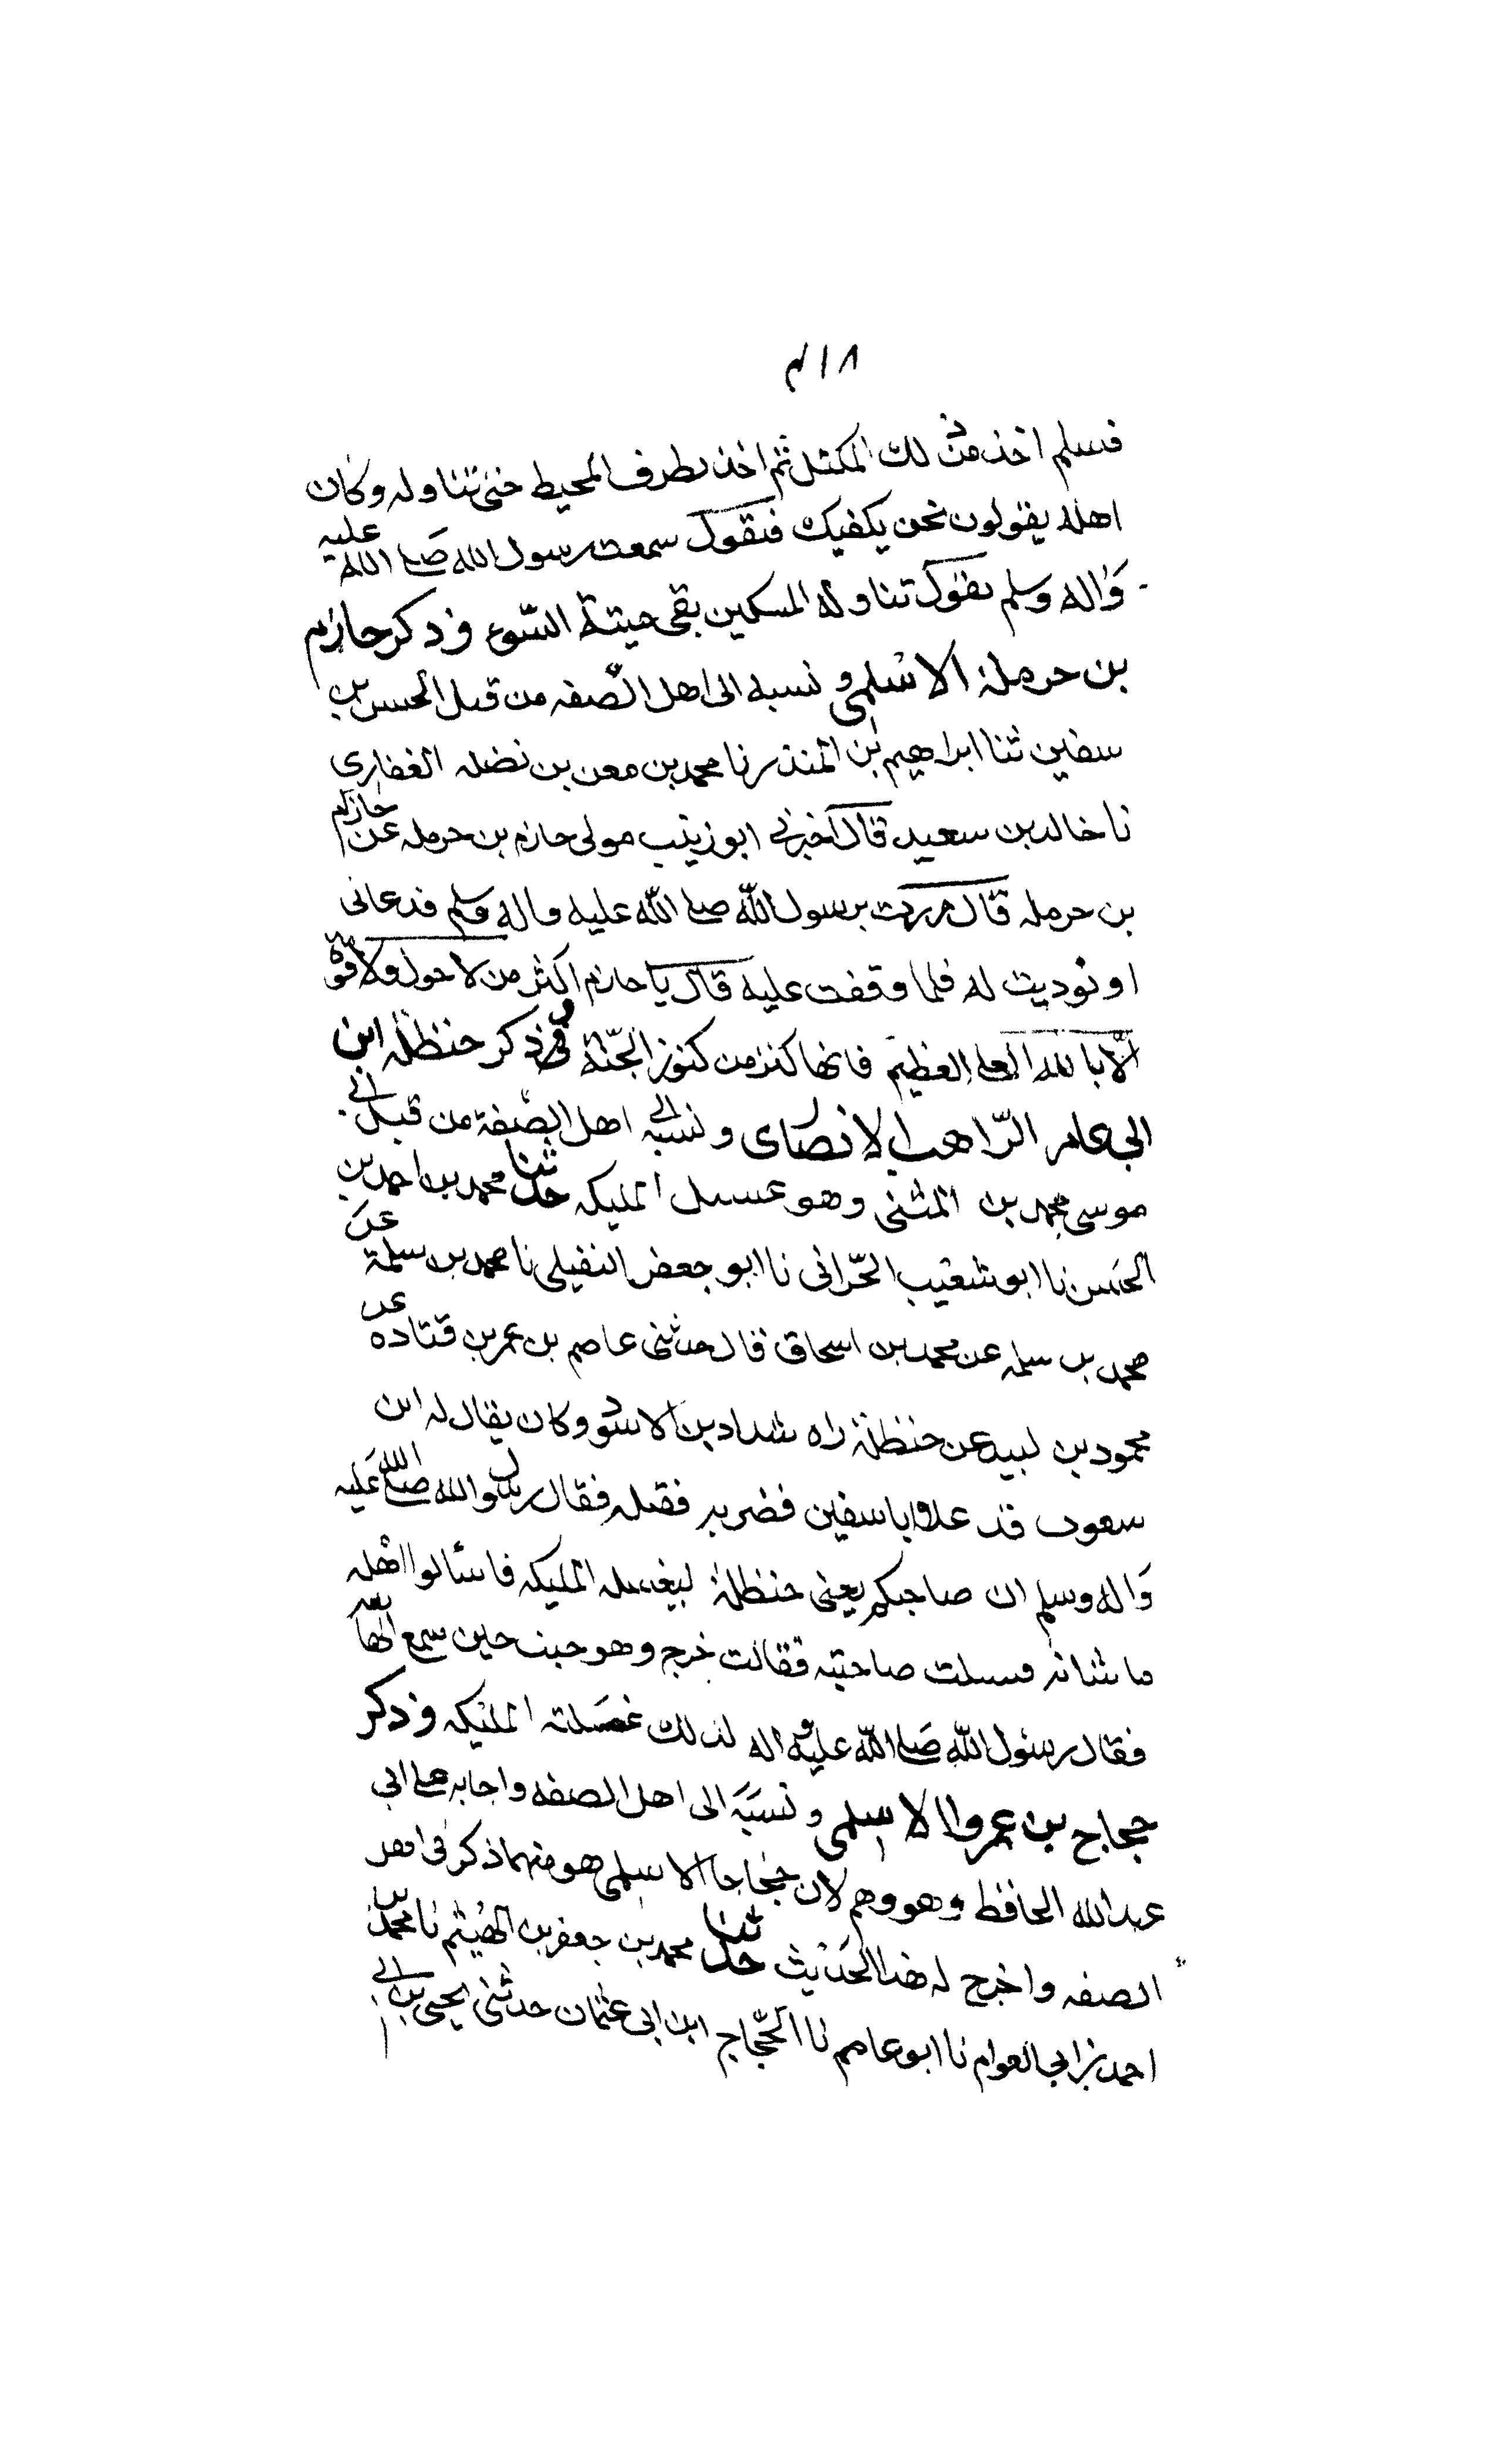 ٤١٨
فسلم اخذ من ذلك المكتل ثم اخذ بطرف المحيط حتى تناوله وكان
اهله يقولون نحن يكفيك فيقول سمعت رسول الله صلى الله عليه
واله وسلم يقول تناوله المسكين يقى ميتة السوء وذكر حازم
بن حرملة الاسلمي و نسبه الى اهل الصفه من قبل الحسن بن
سفين ثنا ابراهيم بن المنذر نا محمد بن معن بن نضله الغفارى
نا خالد بن سعيد قال اخبرني ابو زينب مولى حازم بن حرمله عن حازم
بن حرمله قال مررت برسول الله صلى الله عليه واله وسلم فدعانى
او نوديت له فلما وقفت عليه قال يا حازم اكثر من لا حول ولا قوة
الا بالله العلى العظيم فانها كنز من كنوز الجنة وذكر حنظلة ابن
ابي عامر الراهب الانصاى و نسبه الى اهل الصفة من قبل ابي
موسى محمد بن المثنى وهو غسيل المليكه حدثنا محمد بن احمد بن
الحسن نا ابو شعيب الحرانى نا ابو جعفر النفيلى نا محمد بن سلمة عن
محمد بن سلمه عن محمد بن اسحاق قال حدثنى عاصم بن عمر بن قتاده عن
محمود بن لبيد عن حنظلة راه شداد بن الاسود وكان يقال له ابن
سعوب قد علا ابا سفين فضربه فقتله فقال رسول الله صلى الله عليه
واله وسلم ان صاحبكم يعنى حنظلة ليغسله المليكه فاسئالوا اهله
ما شانه فسيلت صاحبته فقالت خرج وهو جنب حين سمع الهايعه
فقال رسول الله صلى الله عليه واله لذلك غسلته المليكه وذكر
حجاج بن عمرو الاسلمي و نسبه الى اهل الصفه واجابه على ابي
عبد الله الحافظ وهو وهم لان حجاجا الاسلمى هو منهما ذكر فى اهل
الصفه واخرج له هذا الحديث حدثنا محمد بن جعفر بن الهيثم نا محمد بن
احمد بن ابي العوام نا ابو عاصم نا الحجاج ابن ابى عثمان حدثنى يحيى بن ابي